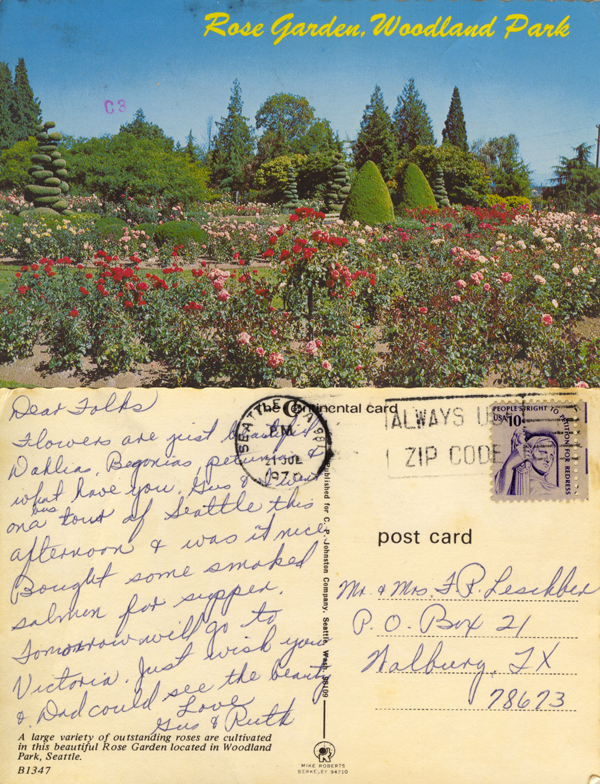 Rose Garden, Woodland Park
C3
Dear Folks
Flowers are just beautiful
Dahlias, Begonias, petunias &
what have you. Gus & I went
on a bus tour of Seattle this
afternoon & was it nice
Bought some smoked
salmon for supper.
Tomorrow will go to
Victoria. Just wish you
& Dad could see the beauty
Love
Gus & Ruth
A large variety of outstanding roses are cultivated
in this beautiful Rose Garden located in Woodland
Park, Seattle.
B1347
The Continental card
SEATTLE, WA 981
PM
21 JUL
197
Published for C. P. Johnston Company, Seattle, Wash. 98109
MIKE ROBERTS
BERKELEY 94710
ALWAYS U
ZIP CODE
PEOPLE'S RIGHT TO PETITION FOR REDRESS
USA 10c
post card
Mr. & Mrs. F. P. Leschber
P. O. Box 21
Walburg, TX
78673